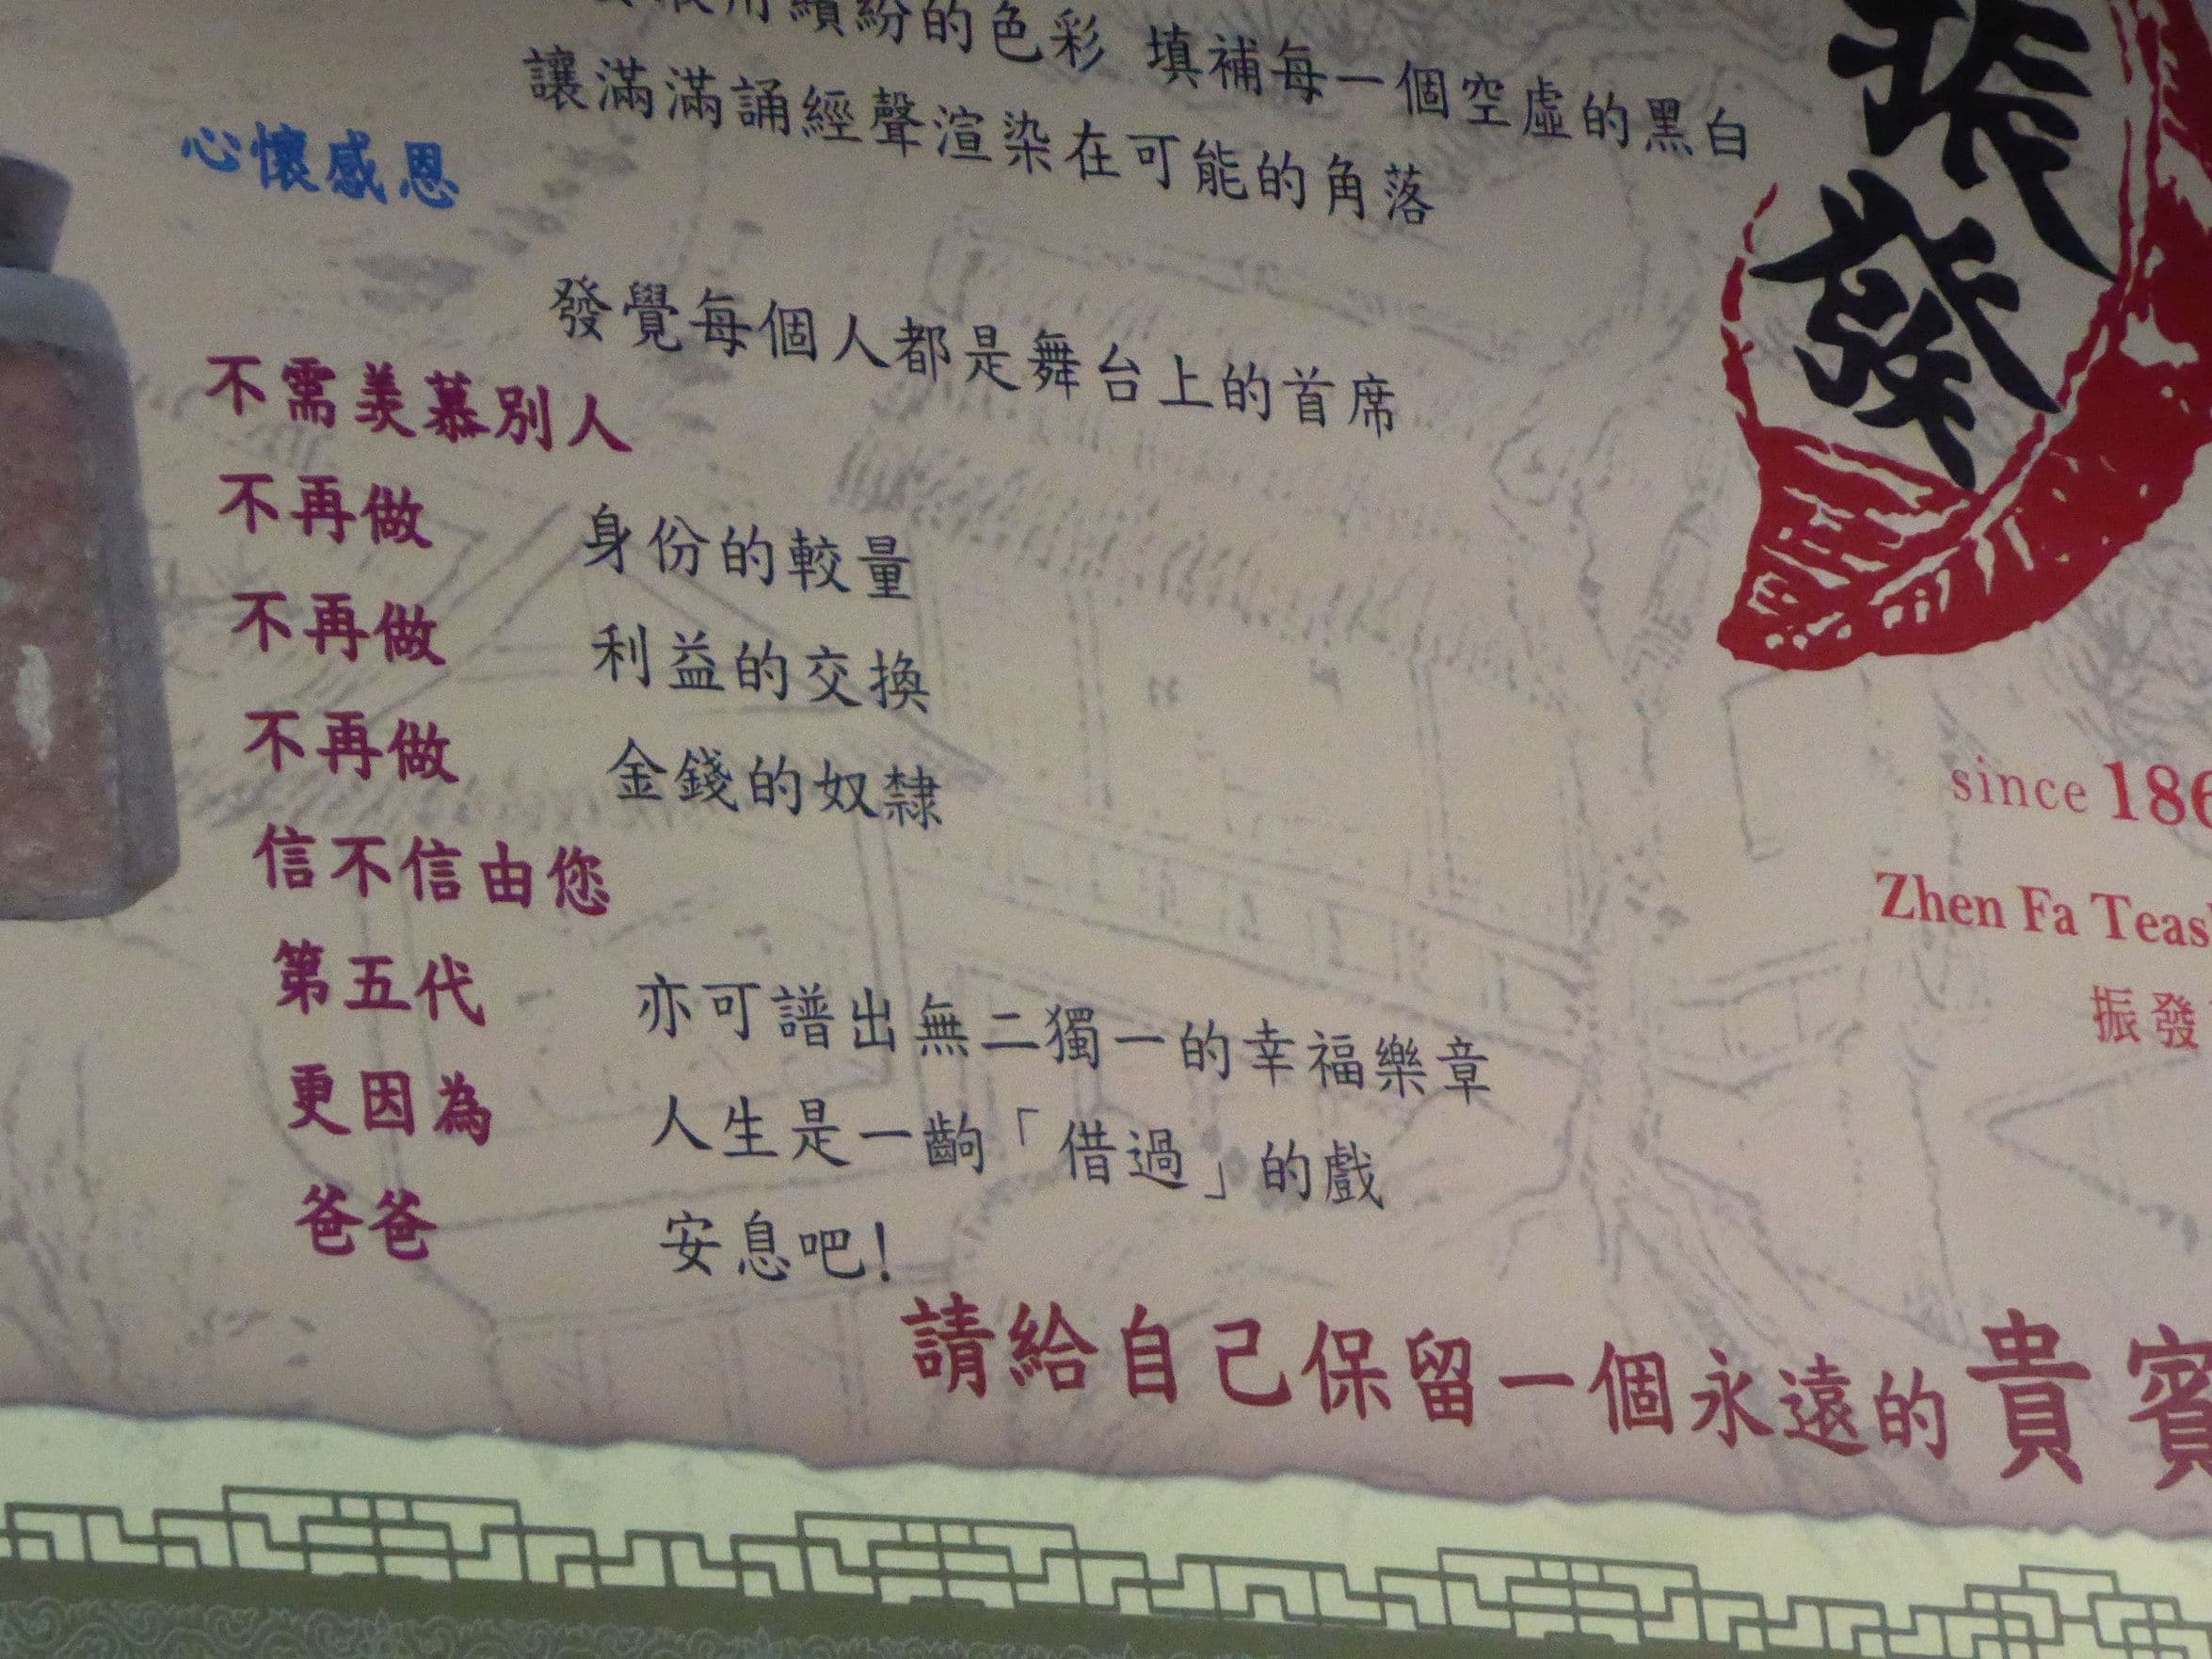 繽紛的色彩 填補每一個空虛的黑白
讓滿滿誦經聲渲染在可能的角落
心懷感恩
發覺每個人都是舞台上的首席
不需羨慕別人
不再做 身份的較量
不再做 利益的交換
不再做 金錢的奴隸
信不信由您
第五代 亦可譜出無二獨一的幸福樂章
更因為 人生是一齣「借過」的戲
爸爸 安息吧!
請給自己保留一個永遠的貴賓
振發
since 186
Zhen Fa Teas
振發